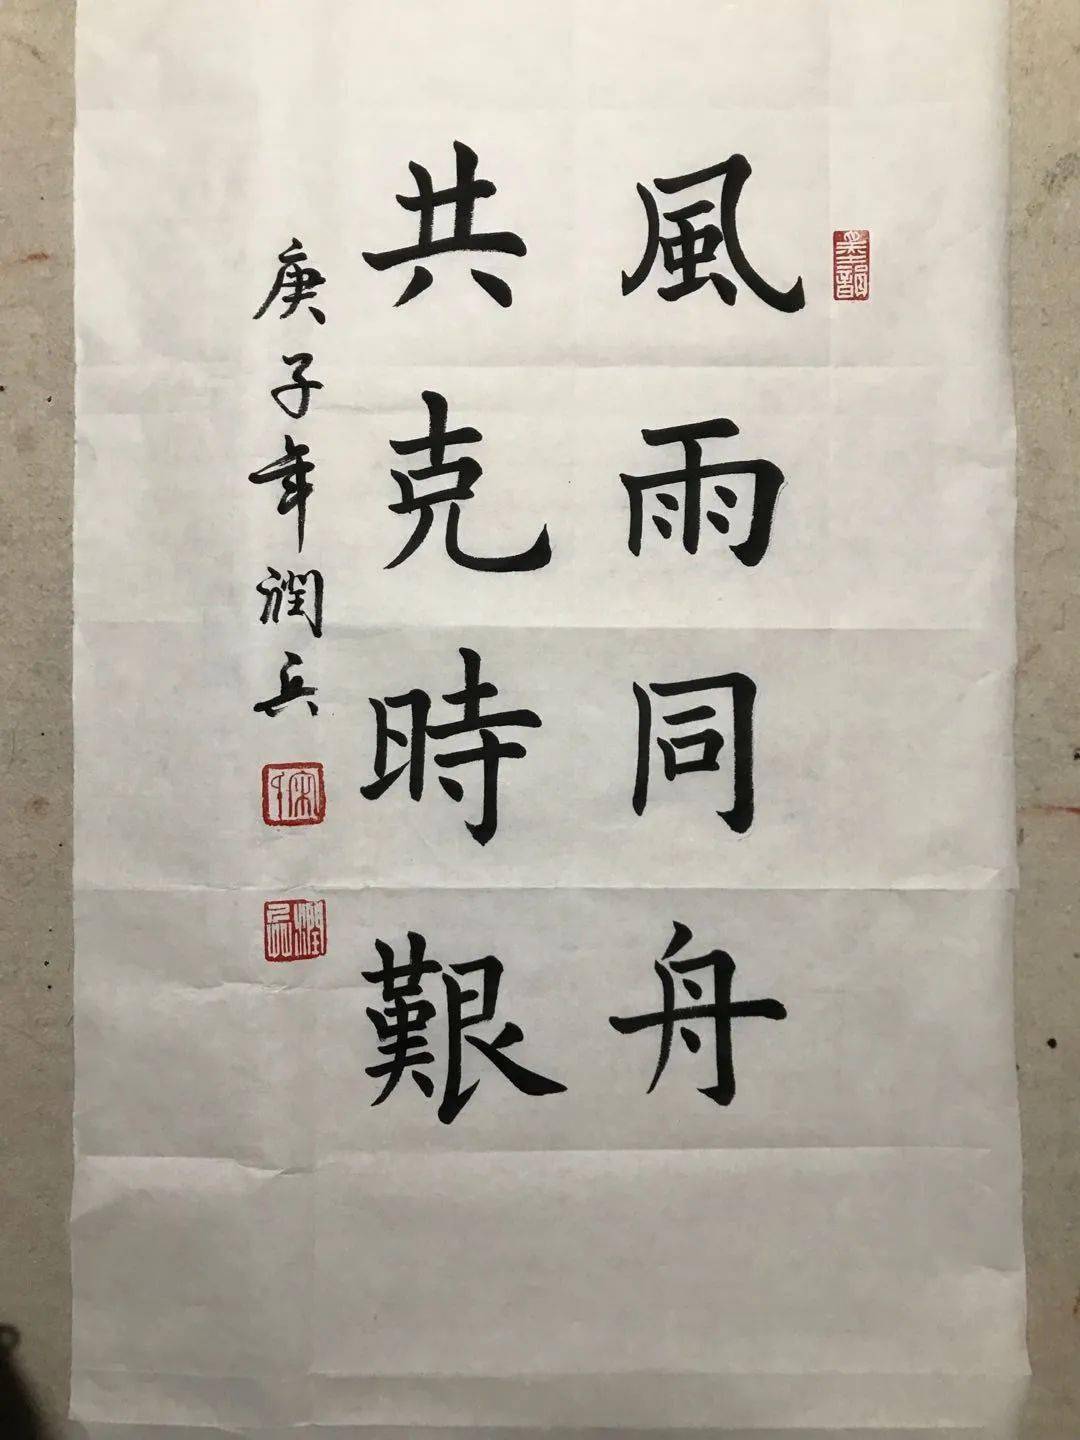 風雨同舟
共克時艱
庚子年潤兵